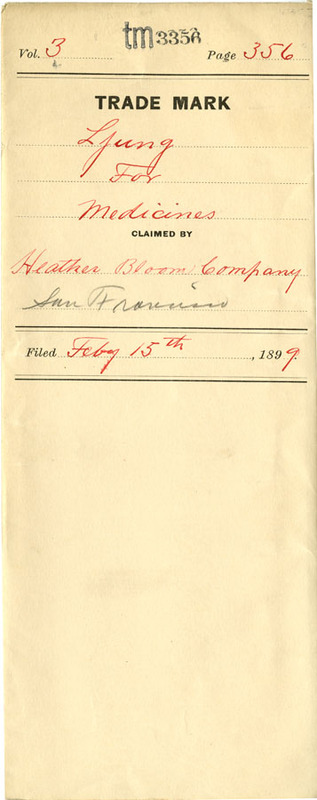 tm3356
Vol. 3 Page 356
TRADE MARK
Ljung
For
Medicines
CLAIMED BY
Heather Bloom Company
San Francisco
Filed Feby 15th, 1899.